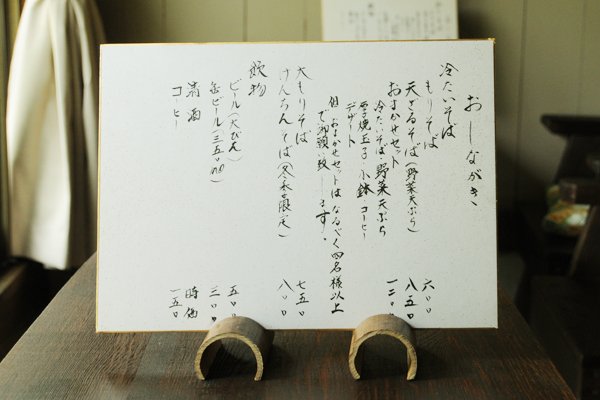 おしながき
冷たいそば
もりそば 六〇〇
天ざるそば(野菜天ぷら) 八五〇
おまかせセット 一二〇〇
冷たいそば・野菜天ぷら
雪焼玉子 小鉢 コーヒー
デザート
但 おまかせセットはなるべく四名様以上
で御願い致します。
大もりそば 七五〇
けんちんそば(冬季限定) 八〇〇
飲物
ビール(大びん) 五〇〇
缶ビール(三五〇ml) 三〇〇
清酒 時価
コーヒー 一五〇